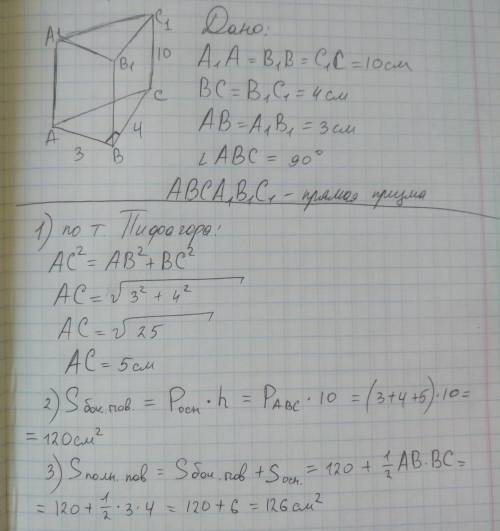 Дано:
A₁A = B₁B = C₁C = 10см
BC = B₁C₁ = 4см
AB = A₁B₁ = 3см
∠ABC = 90°
ABCA₁B₁C₁ - прямая призма
A₁
C₁
B₁
10
A
C
4
3
B
1) по т. Пифагора:
AC² = AB² + BC²
AC = √3² + 4²
AC = √25
AC = 5см
2) Sбок.пов. = Pосн. · h = PABC · 10 = (3+4+5)·10 =
= 120см²
3) Sполн.пов = Sбок.пов + Sосн. = 120 + 1/2 AB·BC =
= 120 + 1/2 · 3 · 4 = 120 + 6 = 126см²